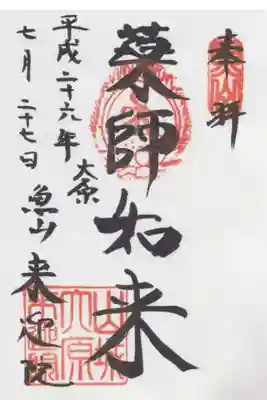 奉拝
薬師如来
大原
魚山 来迎院
平成二十六年
七月二十七日